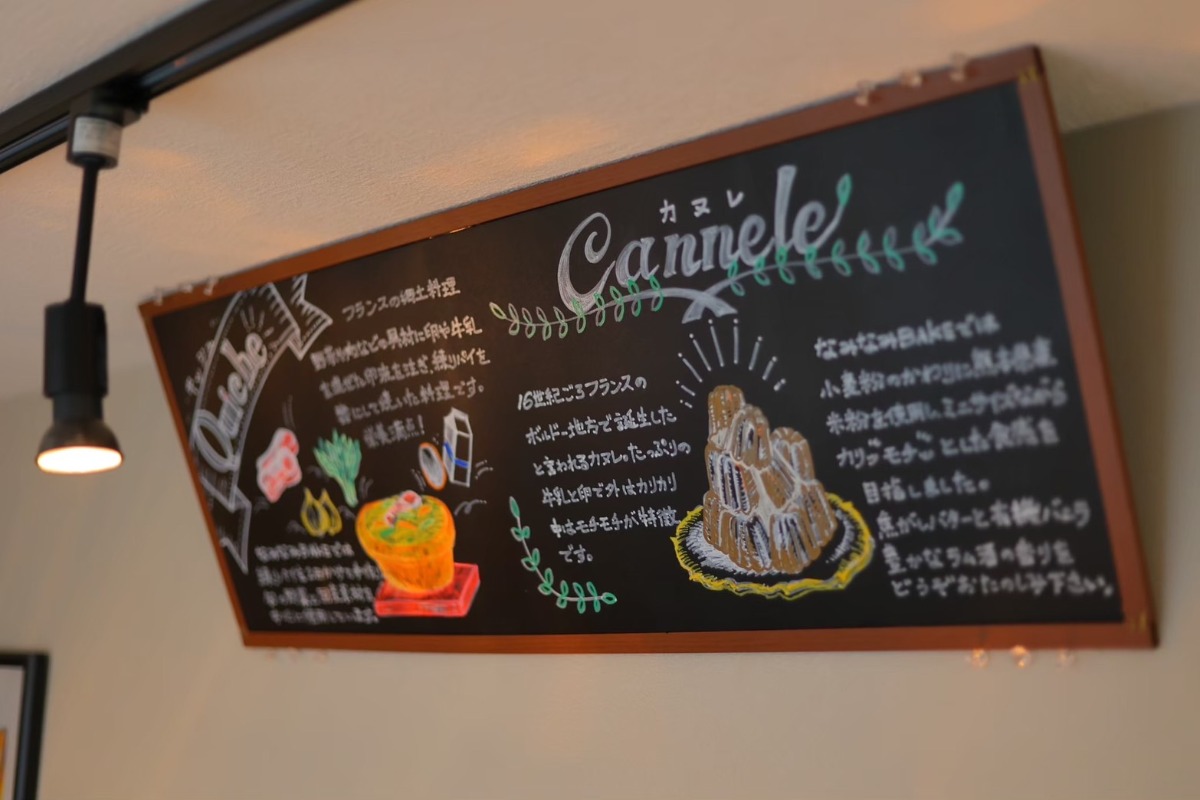 Quiche
フランスの郷土料理
野菜や肉などの具材に卵や牛乳
を混ぜた卵液を注ぎ、練りパイを
器にして焼いた料理です。
栄養満点!
カヌレ
Cannele
16世紀ごろフランスの
ボルドー地方で誕生した
と言われるカヌレ。たっぷりの
牛乳と卵で外はカリカリ
中はモチモチが特徴
です。
なみなみBAKEでは
小麦粉のかわりに熊本県産
米粉を使用し、ミニサイズながら
カリッモチッとした食感を
目指しました。
焦がしバターと有機バニラ
豊かなラム酒の香りを
どうぞおたのしみ下さい。
なみなみBAKEでは